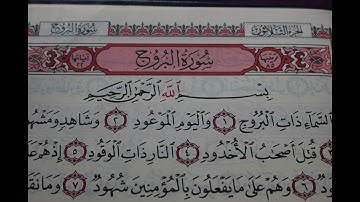 سُورَةُ البُرُوجِ الجُزءُ الثَّلَاثُونَ
سُورَةُ البُرُوجِ
بِسْمِ اللَّهِ الرَّحْمَٰنِ الرَّحِيمِ
السَّمَاءِ ذَاتِ الْبُرُوجِ ١ وَالْيَوْمِ الْمَوْعُودِ ٢ وَشَاهِدٍ وَمَشْهُ
٣ قُتِلَ أَصْحَابُ الْأُخْدُودِ ٤ النَّارِ ذَاتِ الْوَقُودِ ٥ إِذْ هُمْ عَ
ودٌ ٦ وَهُمْ عَلَىٰ مَا يَفْعَلُونَ بِالْمُؤْمِنِينَ شُهُودٌ ٧ وَمَا نَقَ